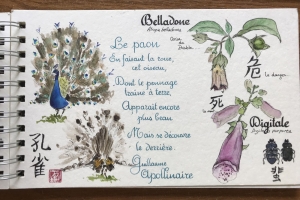 Le paon
En faisant la roue,
cet oiseau,
Dont le pennage
traîne à terre,
Apparaît encore
plus beau
Mais se découvre
le derrière.
Guillaume
Apollinaire
孔
雀
Belladone
危
le danger
死
Digitale